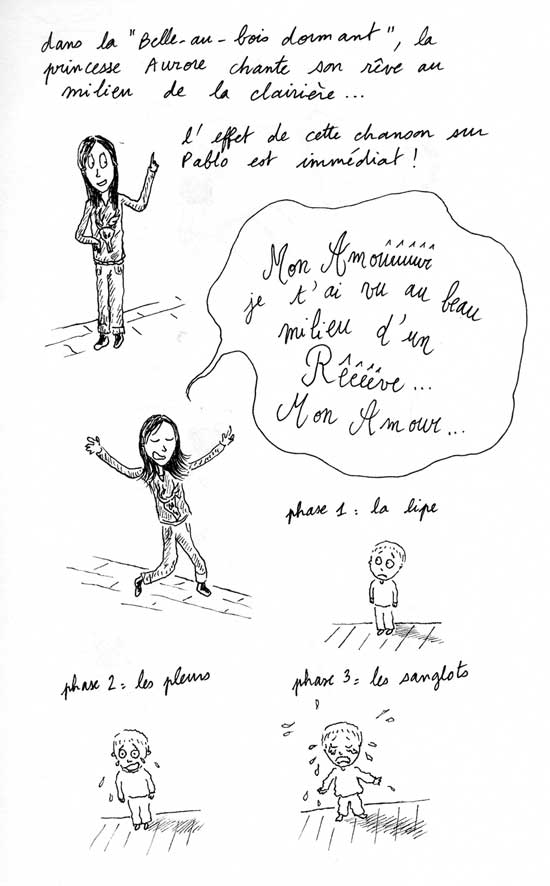 dans la "Belle-au-bois dormant", la
princesse Aurore chante son rêve au
milieu de la clairière...
l'effet de cette chanson sur
Pablo est immédiat !
Mon Amoûûûûûr
je t'ai vu au beau
milieu d'un
Rêêêêve...
Mon Amour...
phase 1 : la lipe
phase 2 : les pleurs
phase 3 : les sanglots